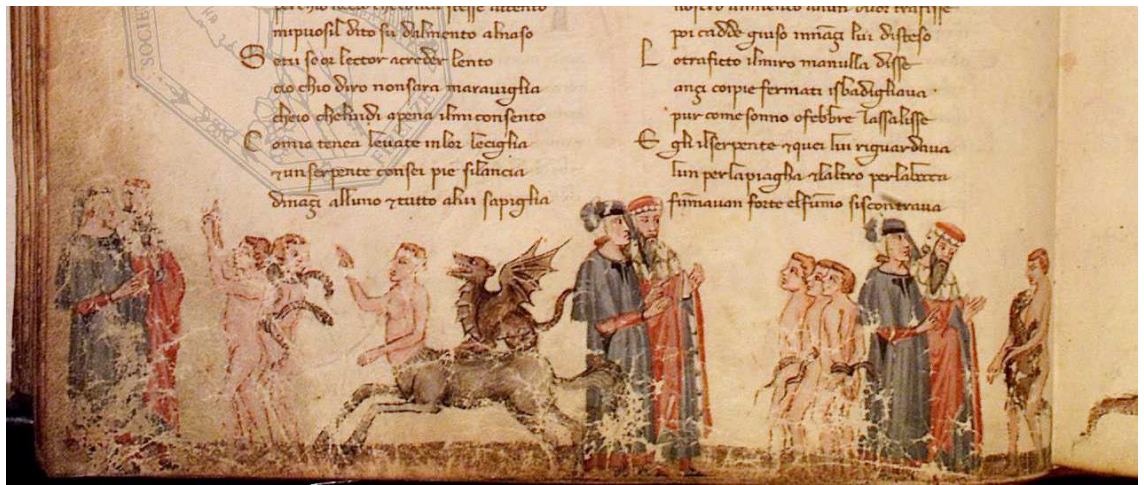 stesse attento
mipuosil dito su dalmento alnaso
Setu se or lector acreder lento
cio chio diro nonsara maraviglia
cheio chelvidi apena ilmi consento
Comio tenea levate inlor leciglia
⁊ un serpente consei pie silancia
dinaçi alluno ⁊ tutto alui sapiglia
nostro alimento alun trafisse
poi cadde giuso innaçi lui disteso
Lo trafitto ilmiro manulla disse
ançi coipie fermati isbadigliava
pur come sonno ofebbre lassalisse
Egli ilserpente ⁊ quei lui riguardava
lun perlapiagha ⁊laltro perlabocca
fumavan forte elfumo siscontrava